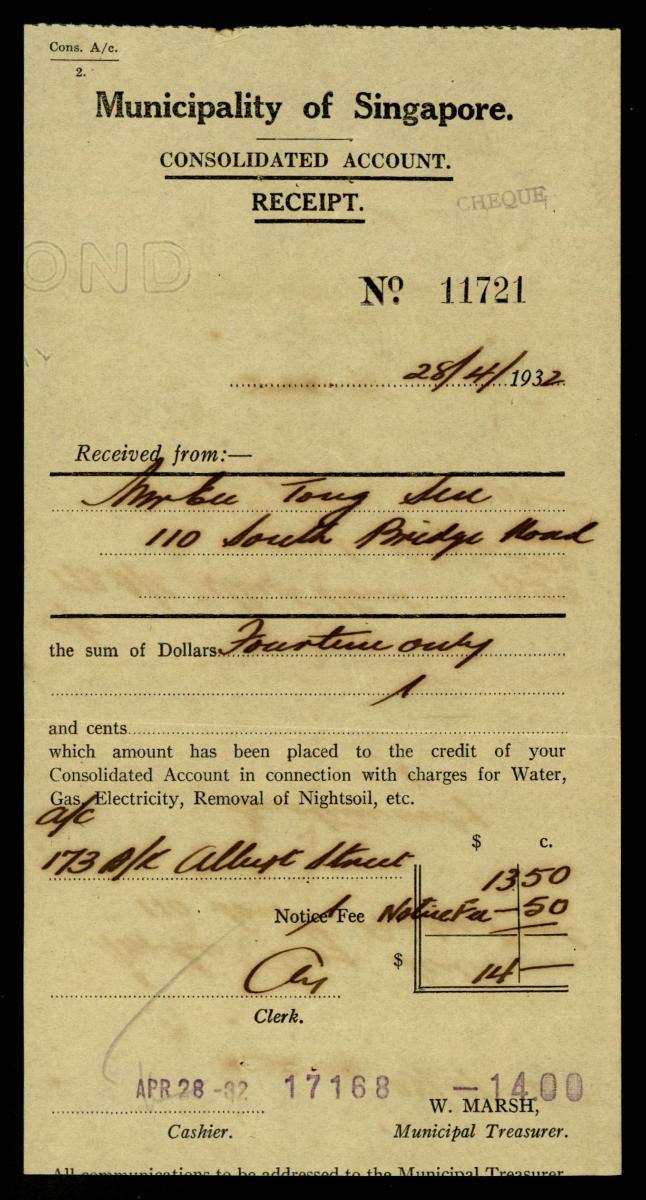 Cons. A/c.
2.
Municipality of Singapore.
CONSOLIDATED ACCOUNT.
RECEIPT.
CHEQUE
OND
No. 11721
28/4/1932
Received from:—
Mr Eu Tong Sen
110 South Bridge Road
the sum of Dollars Fourteen only
and cents
which amount has been placed to the credit of your
Consolidated Account in connection with charges for Water,
Gas, Electricity, Removal of Nightsoil, etc.
a/c
$ c.
173 Albert Street 13 50
Notice Fee Notice Fee — 50
$ 14 —
Clerk.
APR 28 -32 17168 —14.00
W. MARSH,
Cashier. Municipal Treasurer.
All communications to be addressed to the Municipal Treasurer